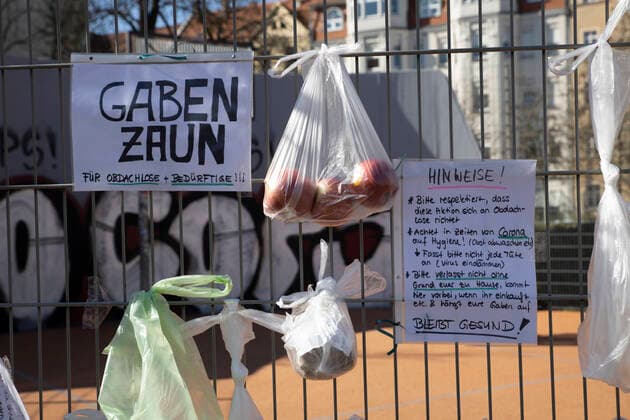 GABEN
ZAUN
FÜR OBDACHLOSE + BEDÜRFTIGE !!!
HINWEISE!
* Bitte respektiert, dass
diese Aktion sich an Obdach-
lose richtet
* Achtet in Zeiten von Corona
auf Hygiene! (Obst abwaschen etc)
↳ Fasst bitte nicht jede Tüte
an (Virus eindämmen)
* Bitte verlasst nicht ohne
Grund euer zu Hause, kommt
hier vorbei, wenn ihr einkauft
etc. & hängt eure Gaben auf
BLEIBT GESUND!